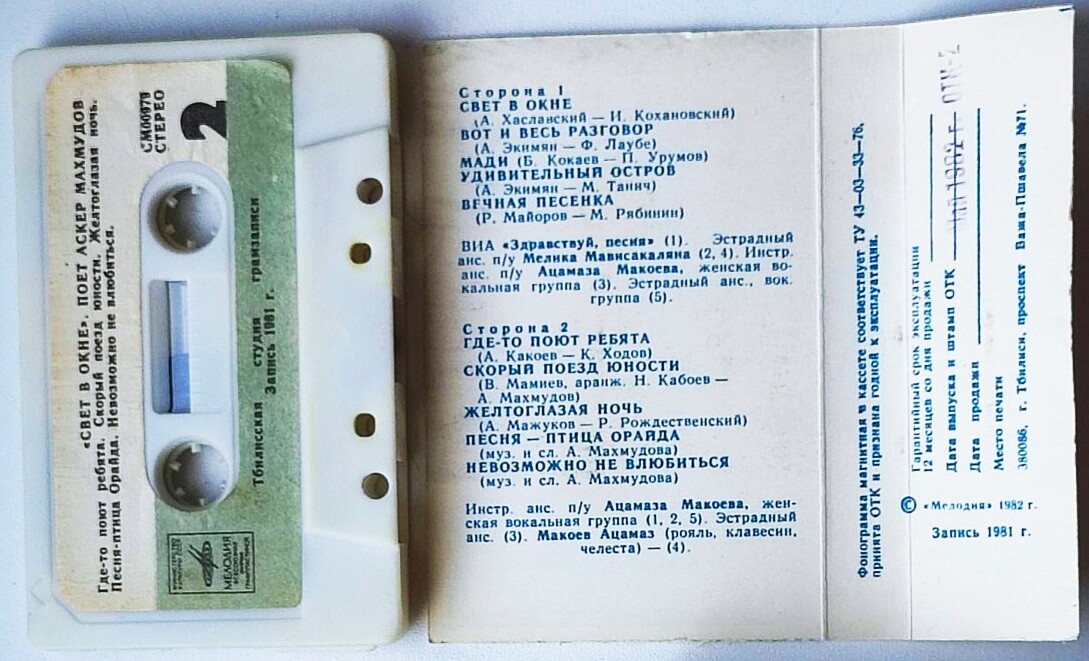 «СВЕТ В ОКНЕ». ПОЕТ АСКЕР МАХМУДОВ
Где-то поют ребята. Скорый поезд юности. Желтоглазая ночь.
Песня-птица Орайда. Невозможно не влюбиться.
СМ00979
СТЕРЕО
2
Тбилисская студия грамзаписи
Запись 1981 г.
МЕЛОДИЯ
Сторона 1
СВЕТ В ОКНЕ
(А. Хаславский — И. Кохановский)
ВОТ И ВЕСЬ РАЗГОВОР
(А. Экимян — Ф. Лаубе)
МАДИ (Б. Кокаев — П. Урумов)
УДИВИТЕЛЬНЫЙ ОСТРОВ
(А. Экимян — М. Танич)
ВЕЧНАЯ ПЕСЕНКА
(Р. Майоров — М. Рябинин)
ВИА «Здравствуй, песня» (1). Эстрадный
анс. п/у Мелика Мависакаляна (2, 4). Инстр.
анс. п/у Ацамаза Макоева, женская во-
кальная группа (3). Эстрадный анс., вок.
группа (5).
Сторона 2
ГДЕ-ТО ПОЮТ РЕБЯТА
(А. Какоев — К. Ходов)
СКОРЫЙ ПОЕЗД ЮНОСТИ
(В. Мамиев, аранж. Н. Кабоев —
А. Махмудов)
ЖЕЛТОГЛАЗАЯ НОЧЬ
(А. Мажуков — Р. Рождественский)
ПЕСНЯ — ПТИЦА ОРАЙДА
(муз. и сл. А. Махмудова)
НЕВОЗМОЖНО НЕ ВЛЮБИТЬСЯ
(муз. и сл. А. Махмудова)
Инстр. анс. п/у Ацамаза Макоева, жен-
ская вокальная группа (1, 2, 5). Эстрадный
анс. (3). Макоев Ацамаз (рояль, клавесин,
челеста) — (4).
Фонограмма магнитная в кассете соответствует ТУ 43—03—33—76,
принята ОТК и признана годной к эксплуатации.
Гарантийный срок эксплуатации
12 месяцев со дня продажи
Дата выпуска и штамп ОТК 1982 г. ОТК-2
Дата продажи
Место печати
380086, г. Тбилиси, проспект Важа-Пшавела №71.
© «Мелодия» 1982 г.
Запись 1981 г.